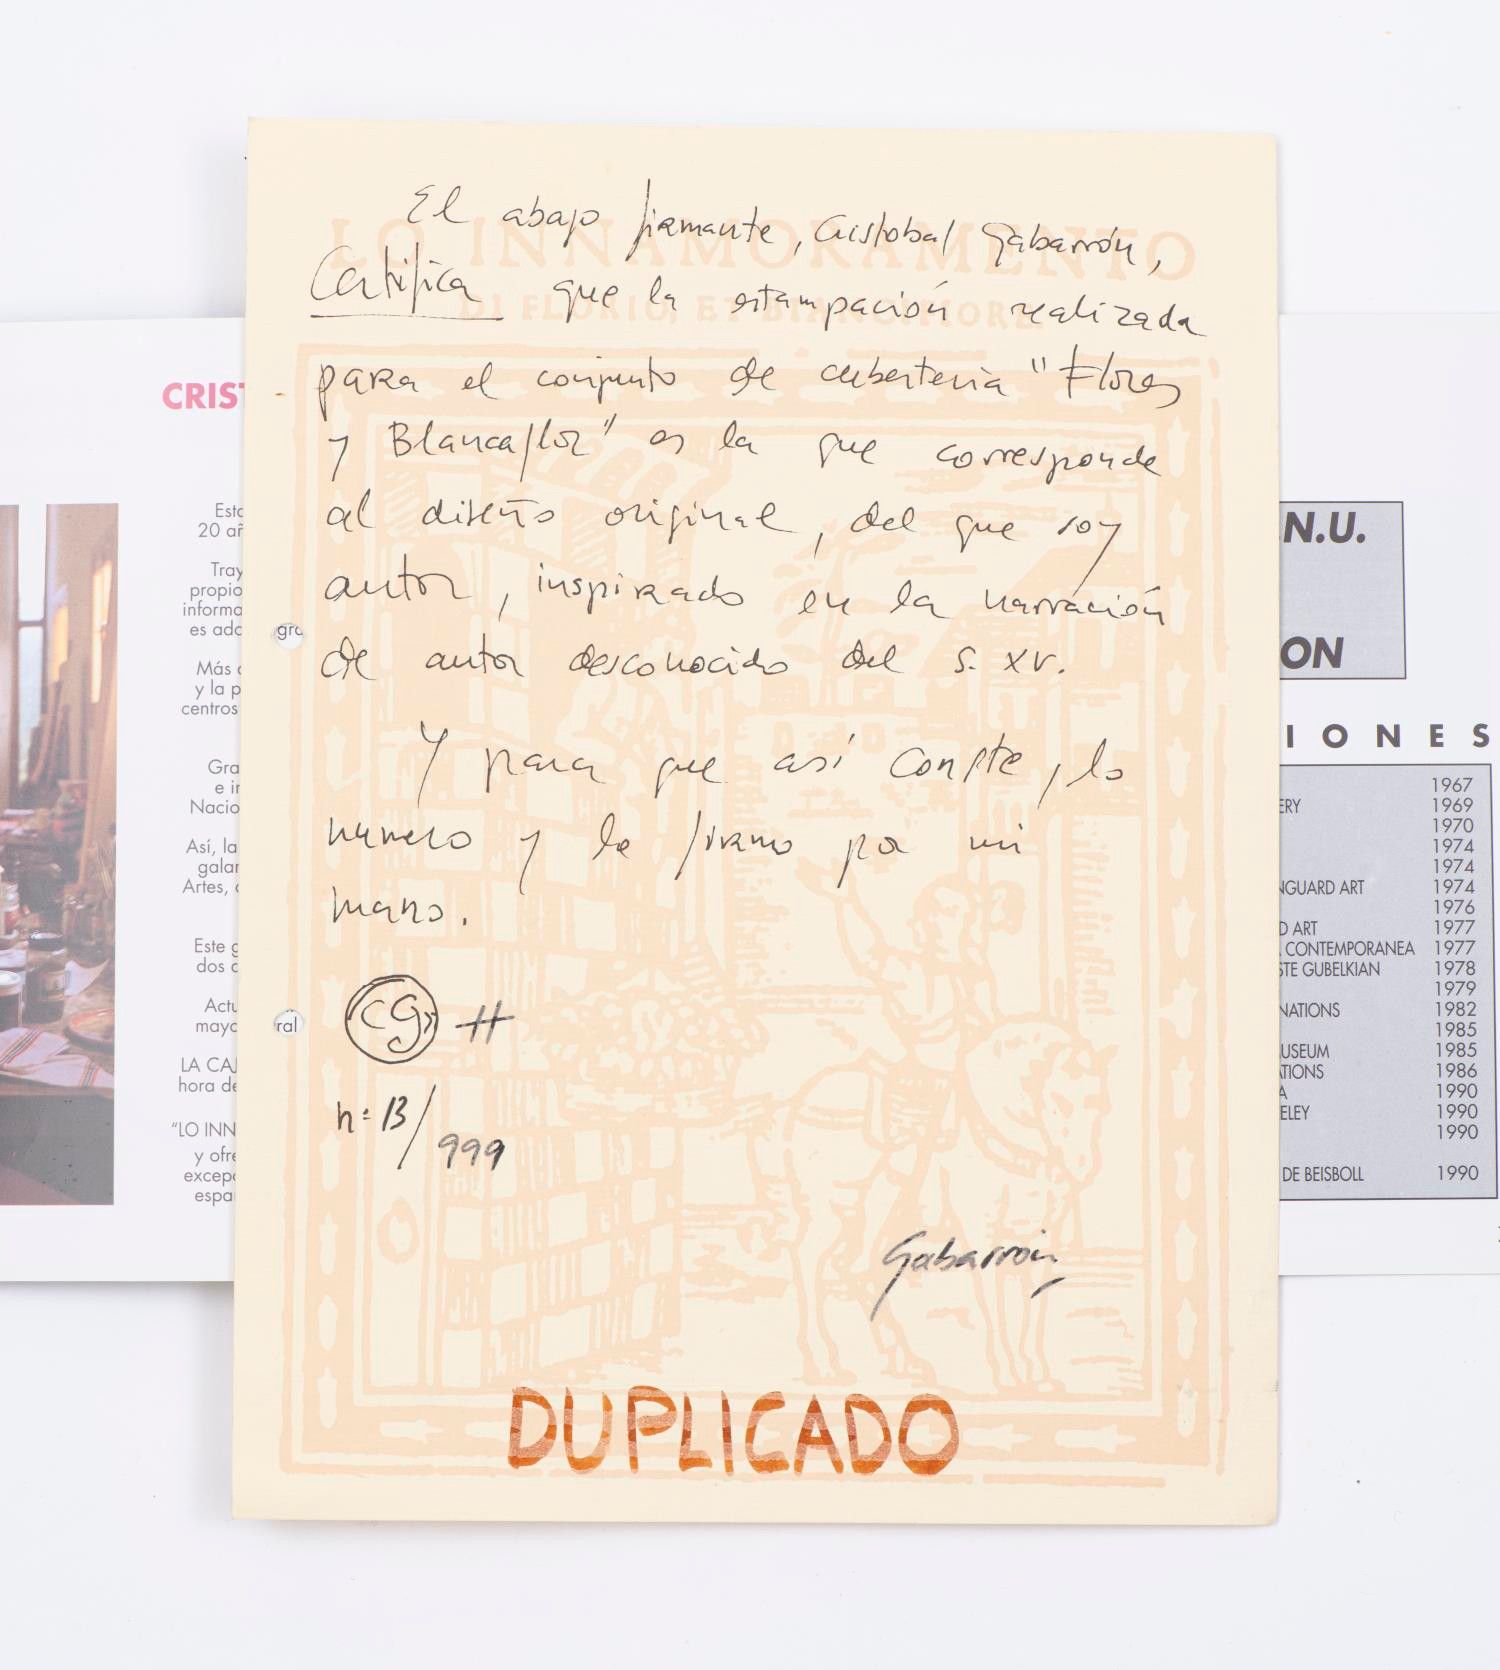 El abajo firmante, Cristobal Gabarrón,
Certifica que la estampación realizada
para el conjunto de cuberteria "Flores
y Blancaflor" es la que corresponde
al diseño original, del que soy
autor, inspirado en la narración
de autor desconocido del s. XV.
Y para que así conste, lo
numero y la firmo por mi
mano.
CG
nº 13/999
Gabarrón
DUPLICADO
LO INNAMORAMENTO
DI FLORIO, ET BIANCIFIORE
CRIST
Esta
20 añ
Tray
propio
informa
es ado
gra
Más
y la p
centros
Gra
e in
Nacio
Así, la
galar
Artes,
Este g
dos
Actu
mayo
ral
LA CAJ
hora de
"LO INN
y ofre
excepc
espa
N.U.
ON
IONES
1967
ERY 1969
1970
1974
1974
NGUARD ART 1974
1976
D ART 1977
CONTEMPORANEA 1977
STE GUBELKIAN 1978
1979
NATIONS 1982
1985
USEUM 1985
TIONS 1986
A 1990
ELEY 1990
1990
DE BEISBOLL 1990